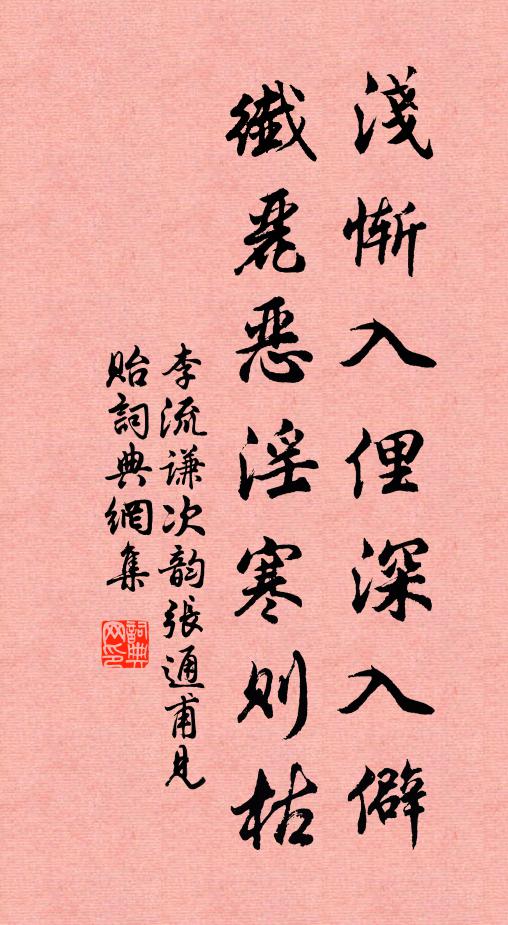 淺惭入俚深入僻
纖麗恶淫寒则枯
李流谦次韵張通甫見
貽詞典網集
詞典网印